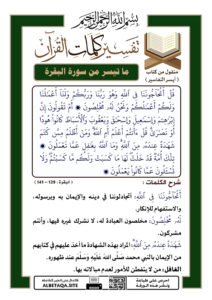 بسم الله الرحمن الرحيم
تفسير كلمات القرآن
منقول من كتاب
( أيسر التفاسير )
ما تيسر من سورة البقرة
قُلْ أَتُحَاجُّونَنَا فِي اللَّهِ وَهُوَ رَبُّنَا وَرَبُّكُمْ وَلَنَا أَعْمَالُنَا
وَلَكُمْ أَعْمَالُكُمْ وَنَحْنُ لَهُ مُخْلِصُونَ * أَمْ تَقُولُونَ إِنَّ
إِبْرَاهِيمَ وَإِسْمَاعِيلَ وَإِسْحَاقَ وَيَعْقُوبَ وَالْأَسْبَاطَ كَانُوا هُودًا
أَوْ نَصَارَى قُلْ أَأَنْتُمْ أَعْلَمُ أَمِ اللَّهُ وَمَنْ أَظْلَمُ مِمَّنْ كَتَمَ
شَهَادَةً عِنْدَهُ مِنَ اللَّهِ وَمَا اللَّهُ بِغَافِلٍ عَمَّا تَعْمَلُونَ *
تِلْكَ أُمَّةٌ قَدْ خَلَتْ لَهَا مَا كَسَبَتْ وَلَكُمْ مَا كَسَبْتُمْ وَلَا
تُسْأَلُونَ عَمَّا كَانُوا يَعْمَلُونَ
شرح الكلمات : ( البقرة : 139 - 141 )
أَتُحَاجُّونَنَا فِي اللَّهِ: أتجادلوننا في دينه والإيمان به وبرسوله،
والاستفهام للإنكار.
لَهُ مُخْلِصُونَ: مخلصون العبادة له ، لا نشرك غيره فيها، وأنتم
مشركون.
شَهَادَةً عِنْدَهُ مِنَ اللَّهِ: المراد بهذه الشهادة ما أخذ عليهم في كتابهم
من الإيمان بالنبي محمد صلى الله عليه وسلم عند ظهوره.
الغافل: من لا يتفطن للأمور لعدم مبالاته بها.
ALBETAQA.SITE